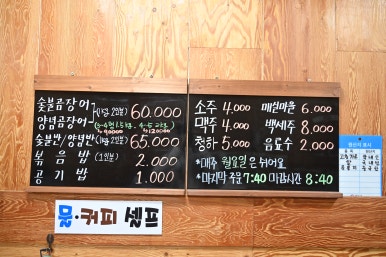 숯불곰장어 (1kg 2인분) 60.000
양념곰장어
숯불반/양념반 65.000
볶음밥 (1인분) 2.000
공기밥 1.000
소주 4.000 매취마을 6.000
맥주 4.000 백세주 8.000
청하 5.000 음료수 2.000
*매주 월요일은 쉬어요
*마지막 주문 7:40 마감시간 8:40
물·커피 셀프
원산지 표시